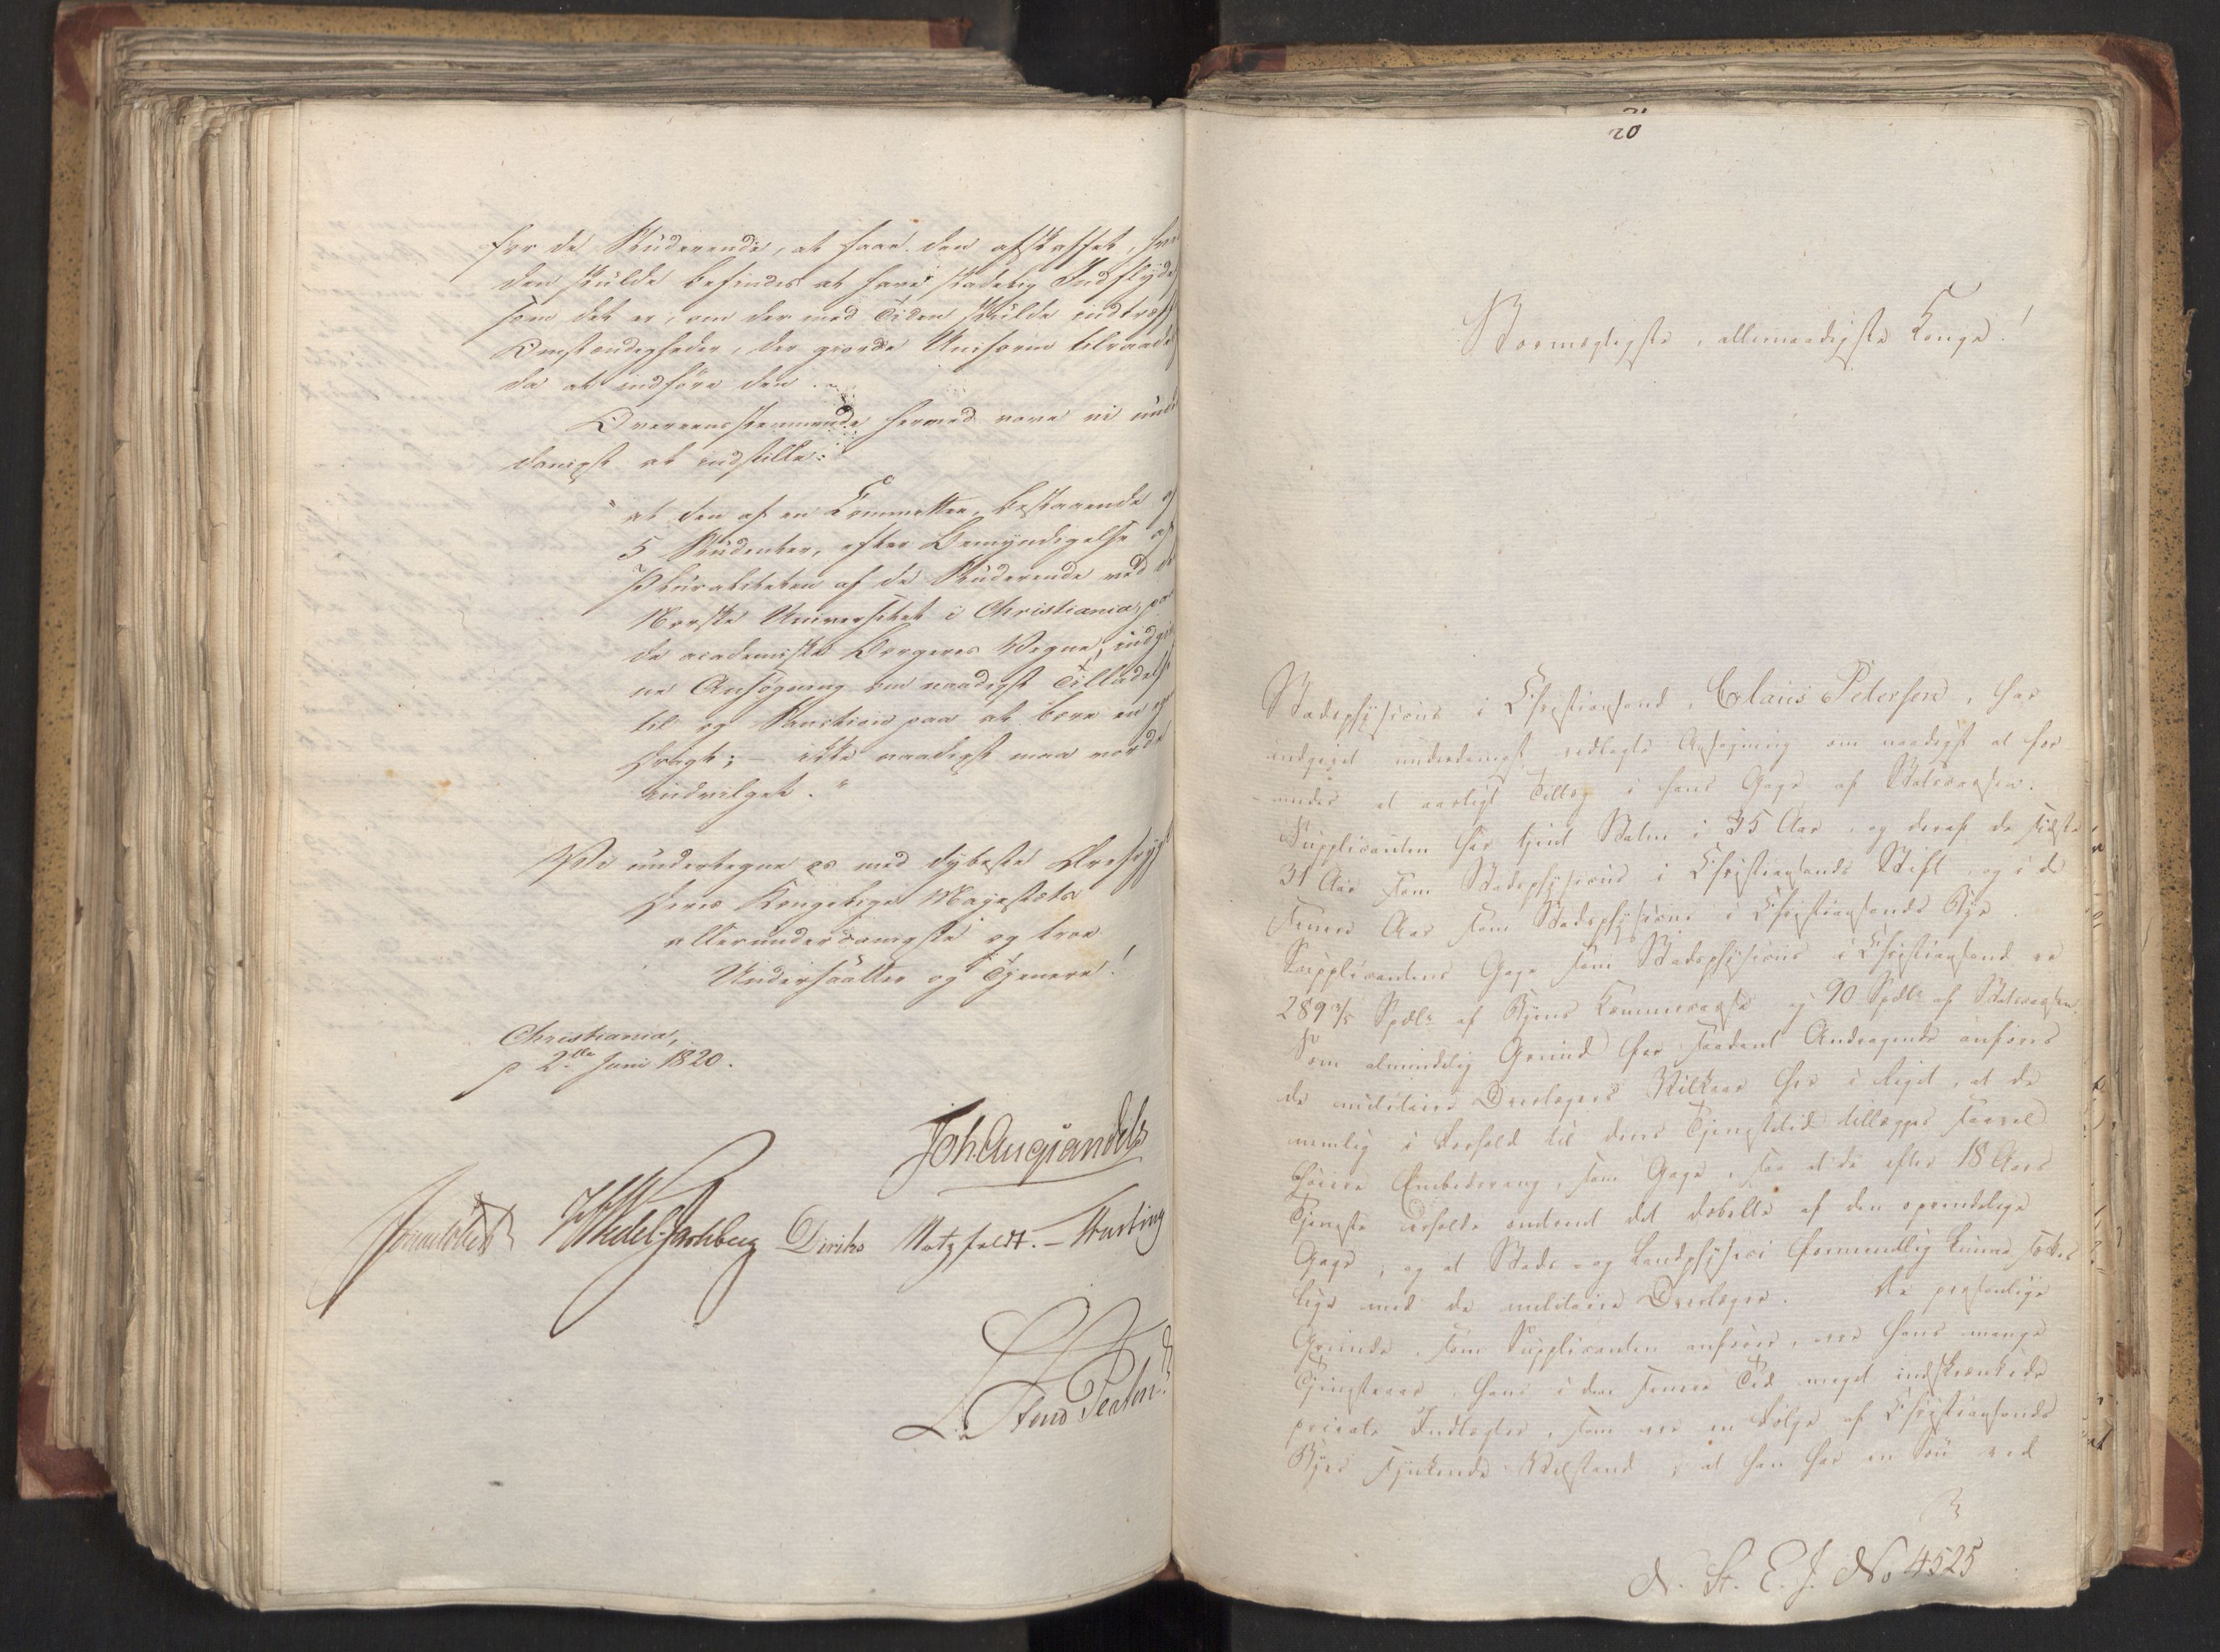 for de Studerende, at faae den afskaffet, hvis
den skulde befindes at have skadelig Indflyde
som det er, om der med Tiden skulde indtræffe
Omstændigheder, der giorde Uniform tilraade
da at indføre den.
Overeensstemmende hermed vove vi under
danigst at indstille:
"at den af en Committee, bestaaende af
5 Studenter, efter Bemyndigelse af
Pluraliteten af de Studerende ved det
Norske Universitet i Christiania, paa
de academiske Borgeres Vegne, indgiv
ne Ansøgning om naadigst Tilladelse
til og Sanction paa at bære en egen
Dragt; – ikke naadigst maa vorde
indvilget."
Vi undertegne os med dybeste Ærefrygt
Deres Kongelige Majestæts
allerunderdanigste og troe
Undersaatter og Tjenere!
Christiania,
d 2den Juni 1820.
Joh. Aug. Sandels
Sommerhielm HWedel-Jarlsberg Diriks Motzfeldt. – Fasting
20
Stormægtigste, allernaadigste Konge!
Stadsphysicus i Christiansand, Claus Petersen, har
indgivet underdanigst vedlagte Ansøgning om naadigst at for
undes et aarligt Tillæg i hans Gage af Statscassen.
Supplicanten har tjent Staten i 35 Aar, og deraf de sidste
31 Aar som Stadsphysicus i Christiansands Stift, og i de
senere Aar som Stadsphysicus i Christiansands Bye.
Supplicantens Gage som Stadsphysicus i Christiansand er
289 3/5 Spdlr af Byens Kæmnercasse og 90 Spdlr af Statscassen.
Som almindelig Grund for saadant Andragende anføres
de militaire Overlægers Vilkaar her i Riget, at de
nemlig i Forhold til deres Tjenestetid tillægges saavel
høiere Embedsrang, som Gage, saa at de efter 18 Aars
Tjeneste erholde omtrent det dobbelte af den oprindelige
Gage, og at Stads- og Landphysici formeentlig kunne sættes
lige med de militaire Overlæger. De personlige
Grunde, som Supplicanten anfører, ere hans mange
Tjenesteaar, hans i den senere Tid meget indskrænkede
private Indtægter, som ere en Følge af Christiansands
Byes synkende Velstand, at han har en Søn ved
N. St. E. J. No 4525